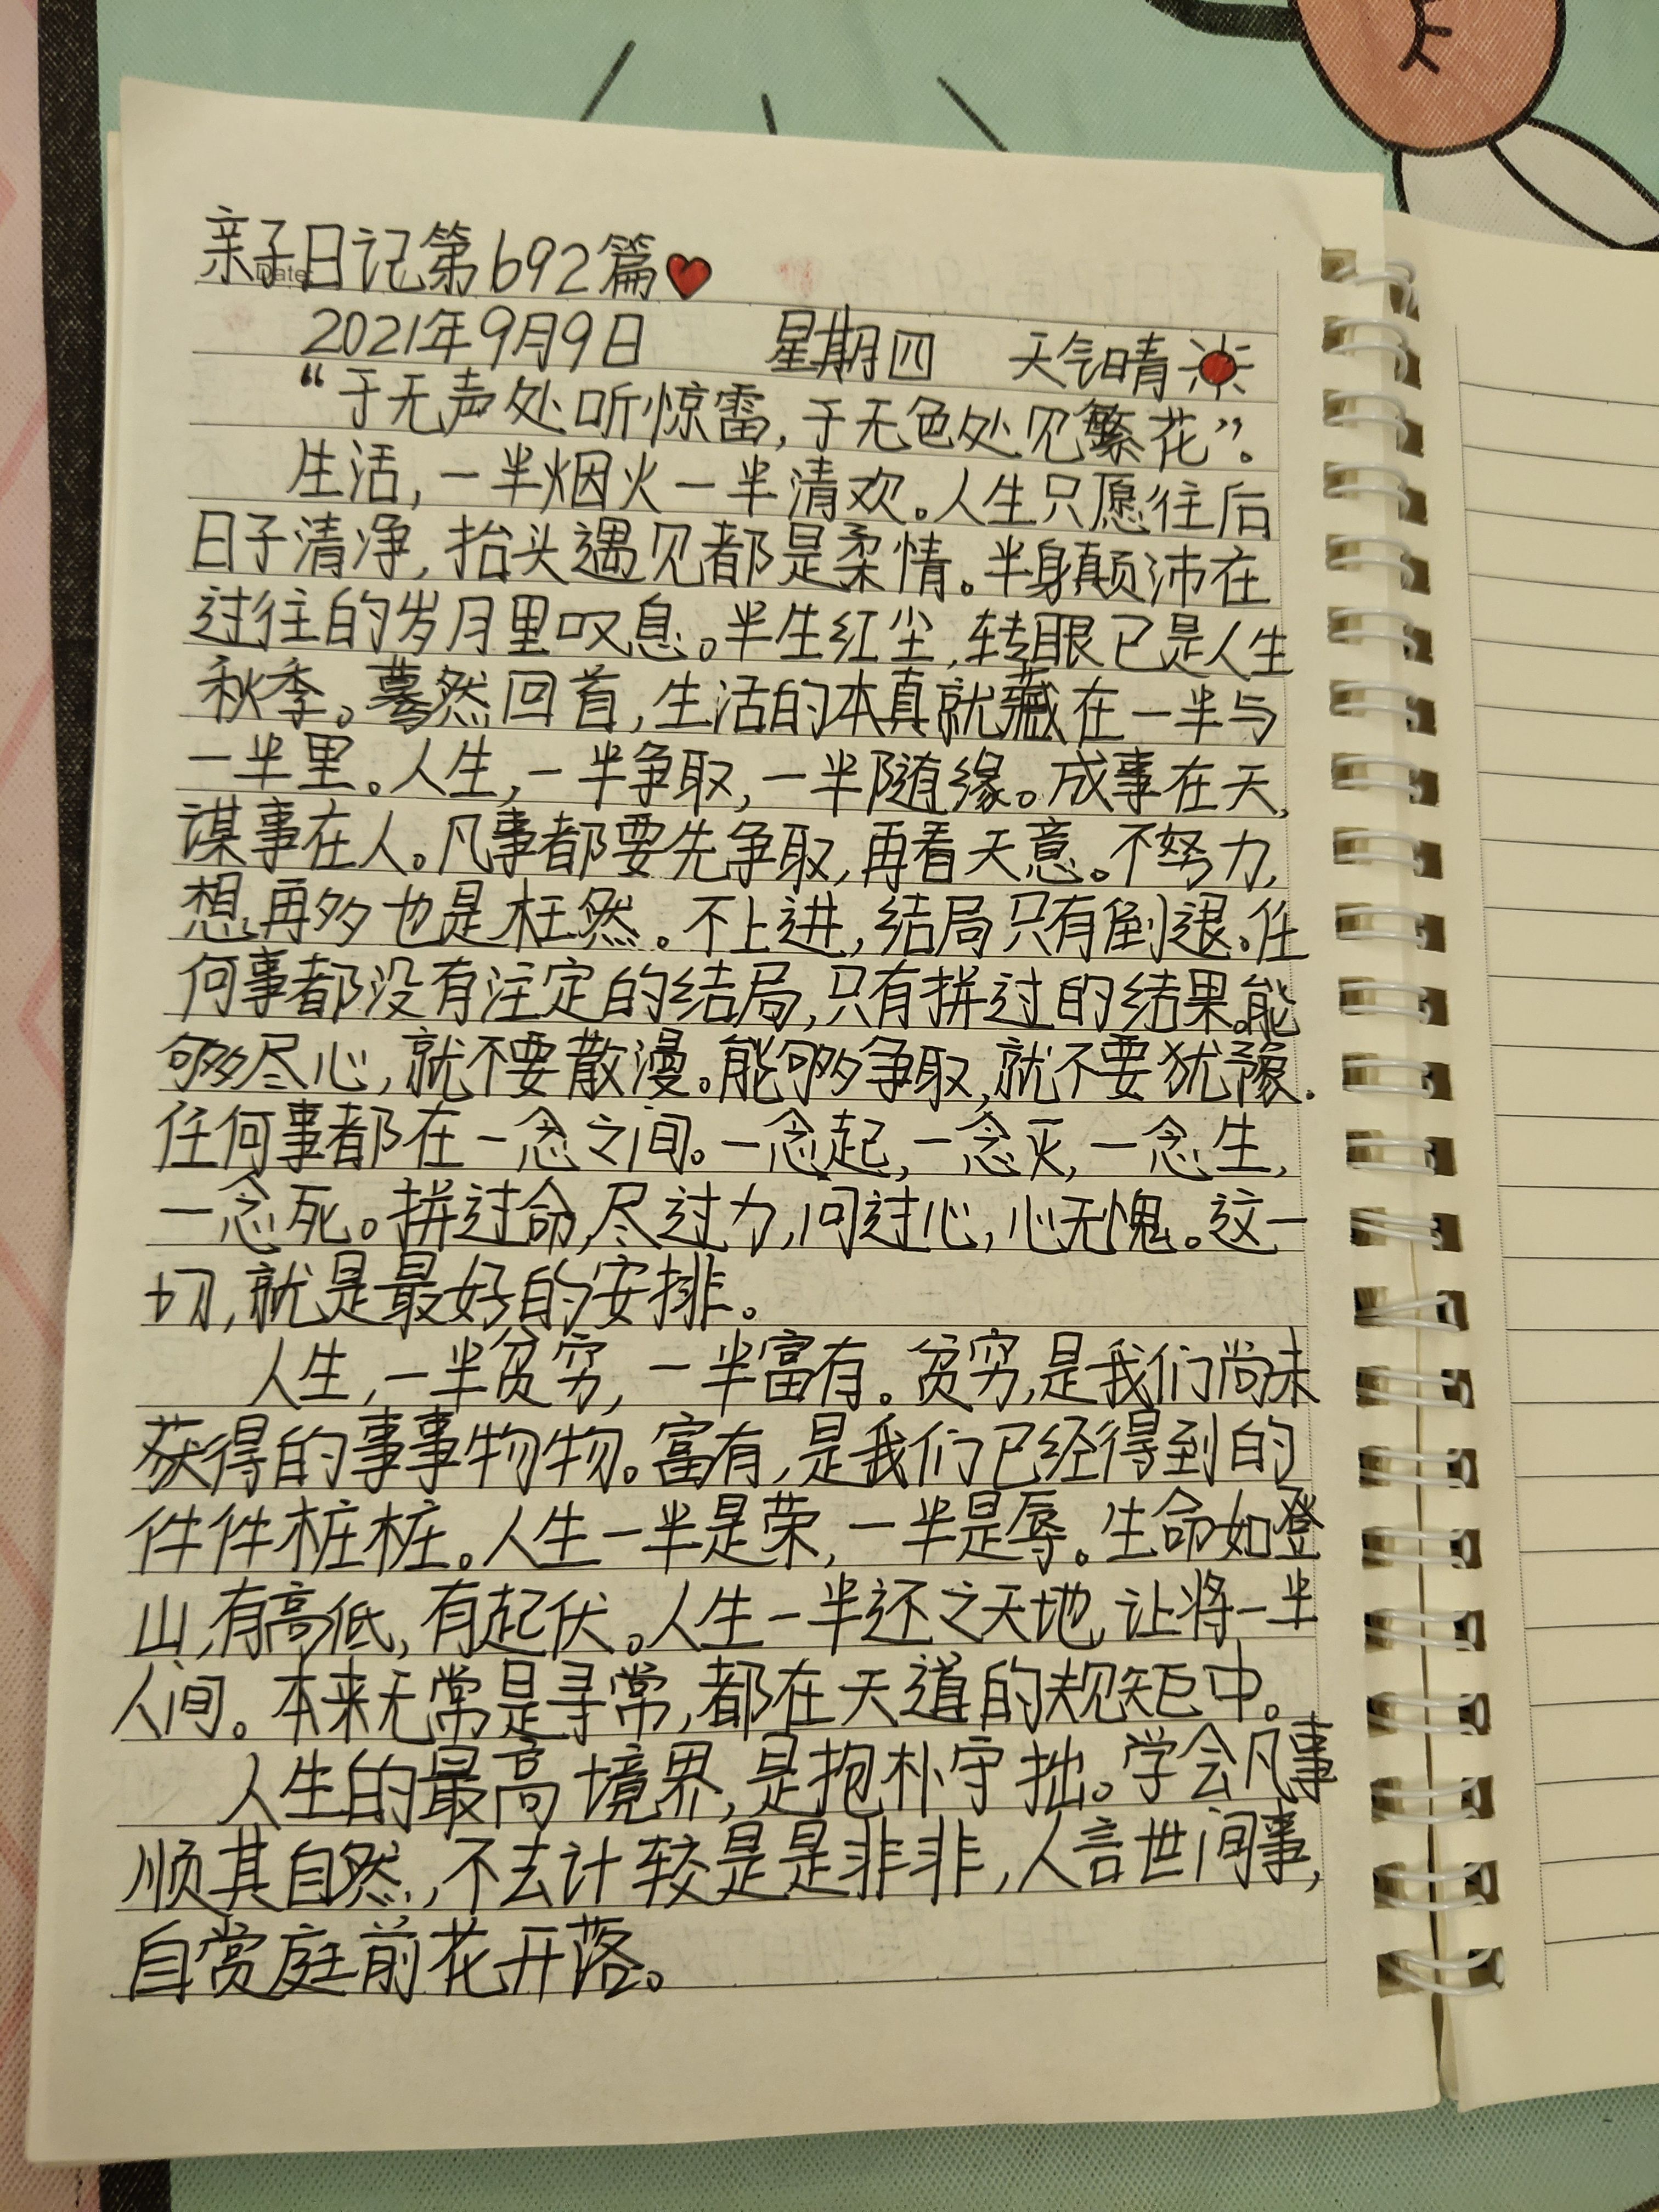 亲子日记第692篇
Date:
2021年9月9日 星期四 天气晴
“于无声处听惊雷,于无色处见繁花”。
生活,一半烟火一半清欢。人生只愿往后
日子清净,抬头遇见都是柔情。半身颠沛在
过往的岁月里叹息。半生红尘,转眼已是人生
秋季。蓦然回首,生活的本真就藏在一半与
一半里。人生,一半争取,一半随缘。成事在天,
谋事在人。凡事都要先争取,再看天意。不努力,
想再多也是枉然。不上进,结局只有倒退。任
何事都没有注定的结局,只有拼过的结果。能
够尽心,就不要散漫。能够争取,就不要犹豫.
任何事都在一念之间。一念起,一念灭,一念生,
一念死。拼过命,尽过力,问过心,心无愧。这一
切,就是最好的安排。
人生,一半贫穷,一半富有。贫穷,是我们尚未
获得的事事物物。富有,是我们已经得到的
件件桩桩。人生一半是荣,一半是辱。生命如登
山,有高低,有起伏。人生一半还之天地,让将一半
人间。本来无常是寻常,都在天道的规矩中。
人生的最高境界,是抱朴守拙。学会凡事
顺其自然,不去计较是是非非,人言世间事,
自赏庭前花开落。